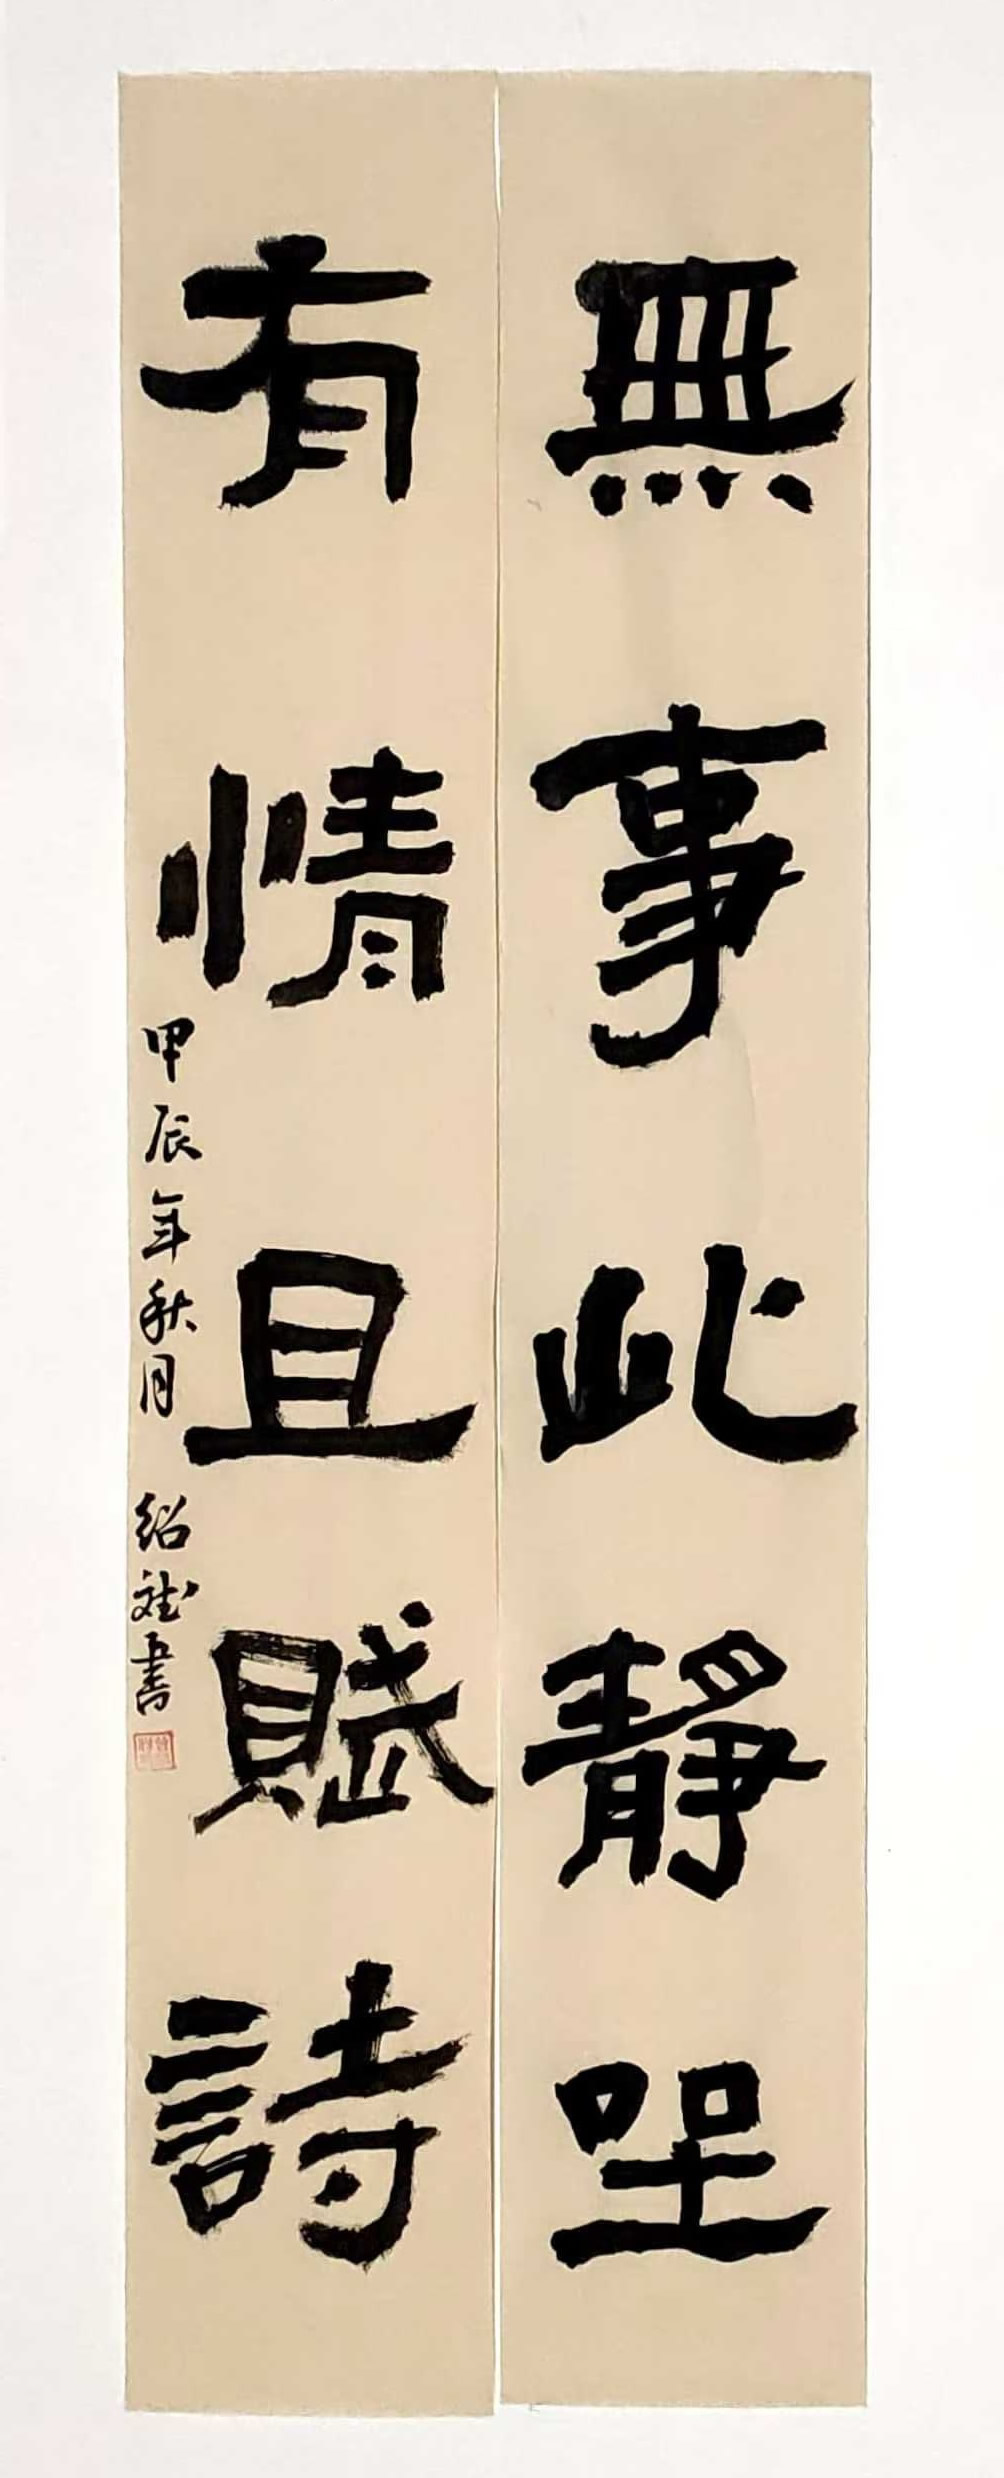 無事此靜坐
有情且賦詩
甲辰年秋月 紹斌書